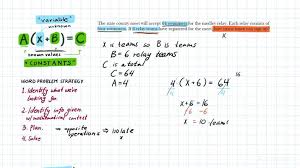 "variable"
unknown
A(X+B)=C
known values
* CONSTANTS *
WORD PROBLEM STRATEGY
1. Identify what we're looking for
2. Identify info given w/ mathematical context
3. Plan. → opposite operations → isolate x
4. Solve
The state county meet will accept 64 swimmers for the medley relay. Each relay consists of
four swimmers. 6 relay teams have registered for the meet.
X is teams so B is teams
B = 6 relay teams
C is a total
C = 64
A = 4
4(x+6) = 64
x+6 = 16
-6 -6
x = 10 teams